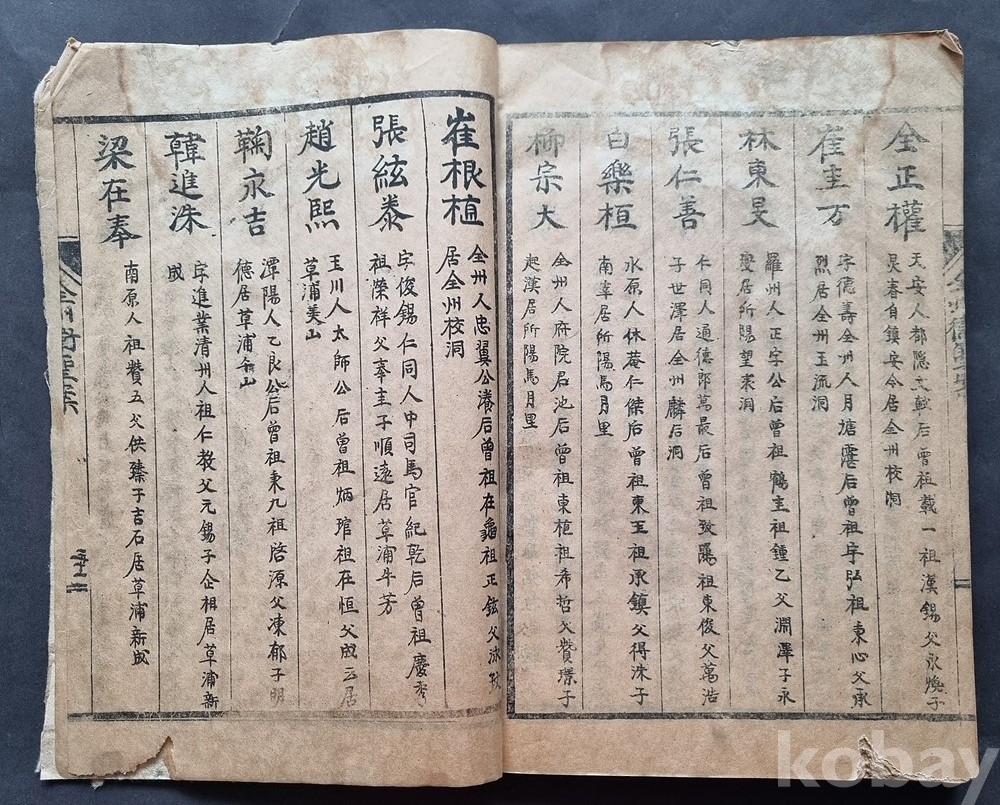 全正權
天安人都隐文戟后曾祖載一祖漢錫父永煥子
炅春自鎮安今居全州校洞
崔圭万
字德壽全州人月塘霮后曾祖字弘祖東心父承
烈居全州玉流洞
林東旻
羅州人正字公后曾祖鶴圭祖鍾乙父淵澤子永
燮居所陽望東洞
張仁善
仁同人通德郎萬最后曾祖致羂祖東俊父萬浩
子世澤居全州麟后洞
白樂桓
水原人休庵仁傑后曾祖東玉祖承鎮父得洙子
南辜居所陽馬月里
柳宗大
全州人府院君池后曾祖東植祖希哲父贊璟子
起漢居所陽馬月里
崔根植
全州人忠翼公瀁后曾祖在龜祖正鉉父沐
居全州校洞
張絃泰
字俊錫仁同人中司馬官紀乾后曾祖慶秀
祖榮祥父奉圭子順遠居草浦牛芳
趙光熙
玉川人太師公后曾祖炳琯祖在恒父成云居
草浦美山
鞠永吉
潭陽人乙艮公后曾祖東九祖啓源父凍郁子明
德居草浦弁山
韓進洙
字進業清州人祖仁教父元錫子企相居草浦新
成
梁在奉
南原人祖贊五父供臻子吉石居草浦新成
kobay